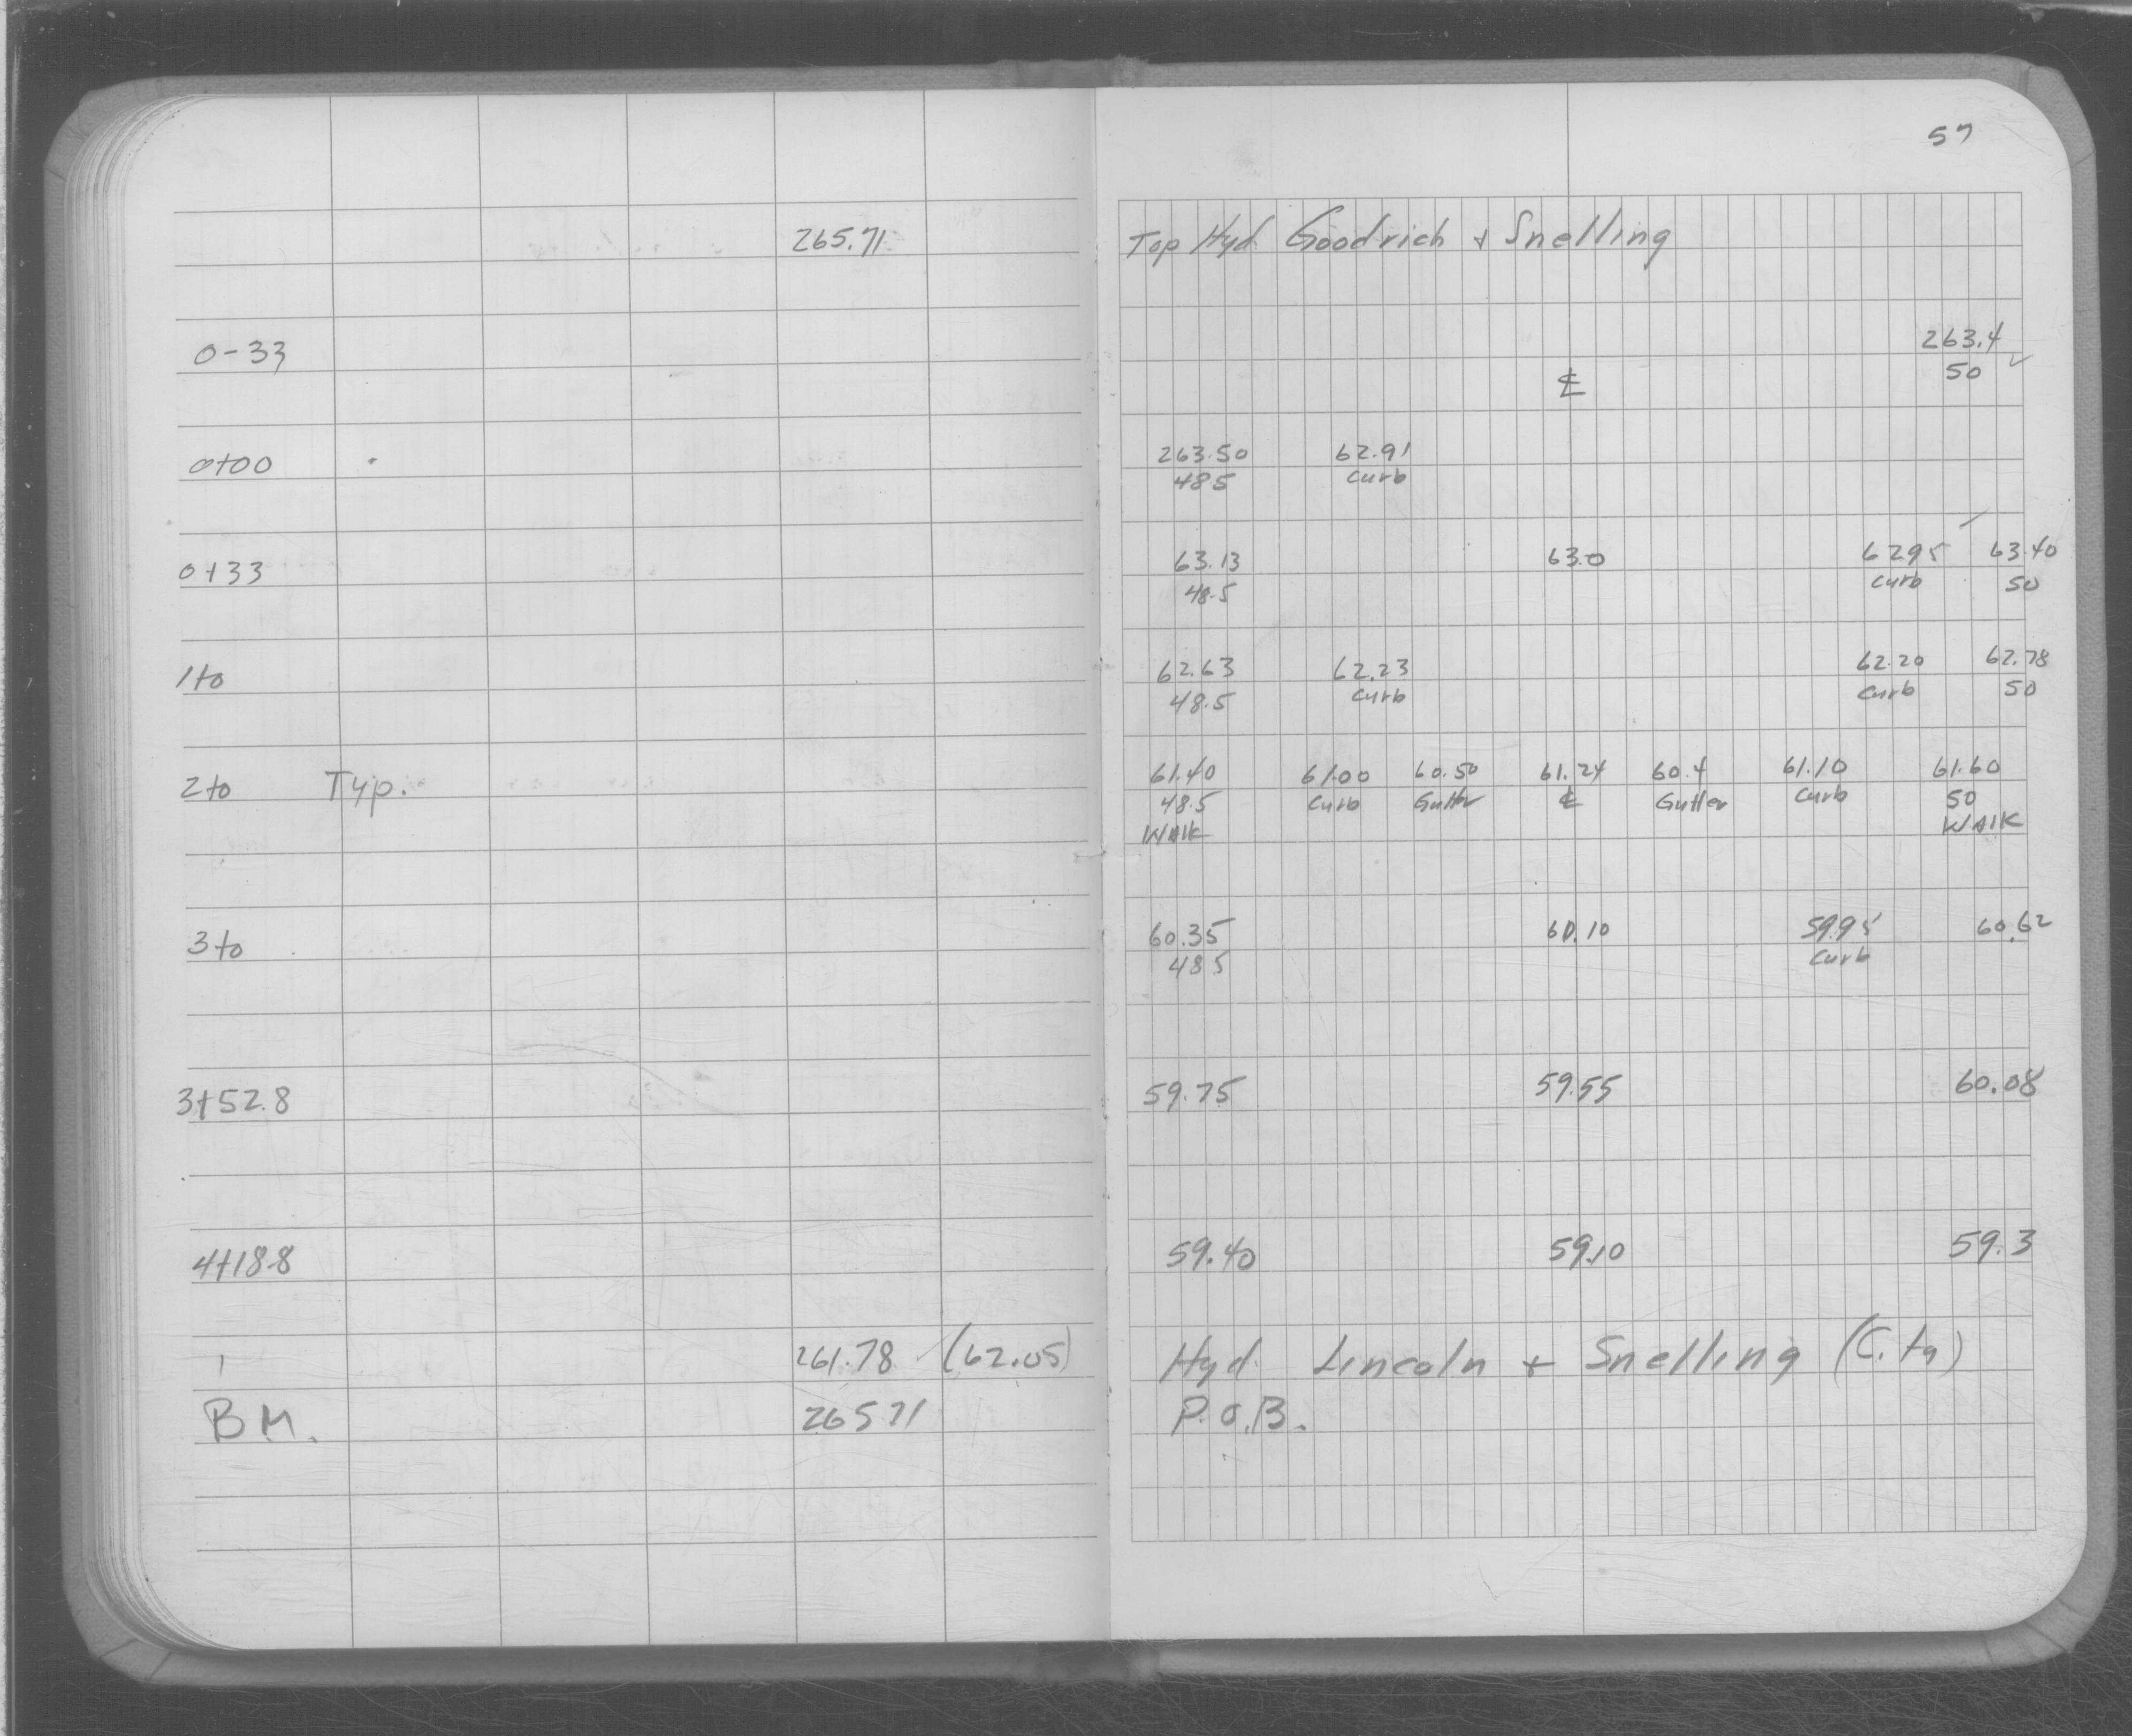 57
265.71 Top Hyd Goodrich + Snelling
0-33 263.4
℄ 50 ✓
0+00 263.50 62.91
48.5 Curb
0+33 63.13 63.0 62.95 63.40
48.5 Curb 50
1+0 62.63 62.23 62.20 62.78
48.5 Curb Curb 50
2+0 Typ. 61.40 61.00 60.50 61.24 60.4 61.10 61.60
48.5 Curb Gutter ℄ Gutter Curb 50
WAlK WAlK
3+0 60.35 60.10 59.95 60.62
48.5 Curb
3+52.8 59.75 59.55 60.08
4+18.8 59.40 59.10 59.3
261.78 (62.05) Hyd. Lincoln + Snelling (City)
B M. 265 71 P.O.B.